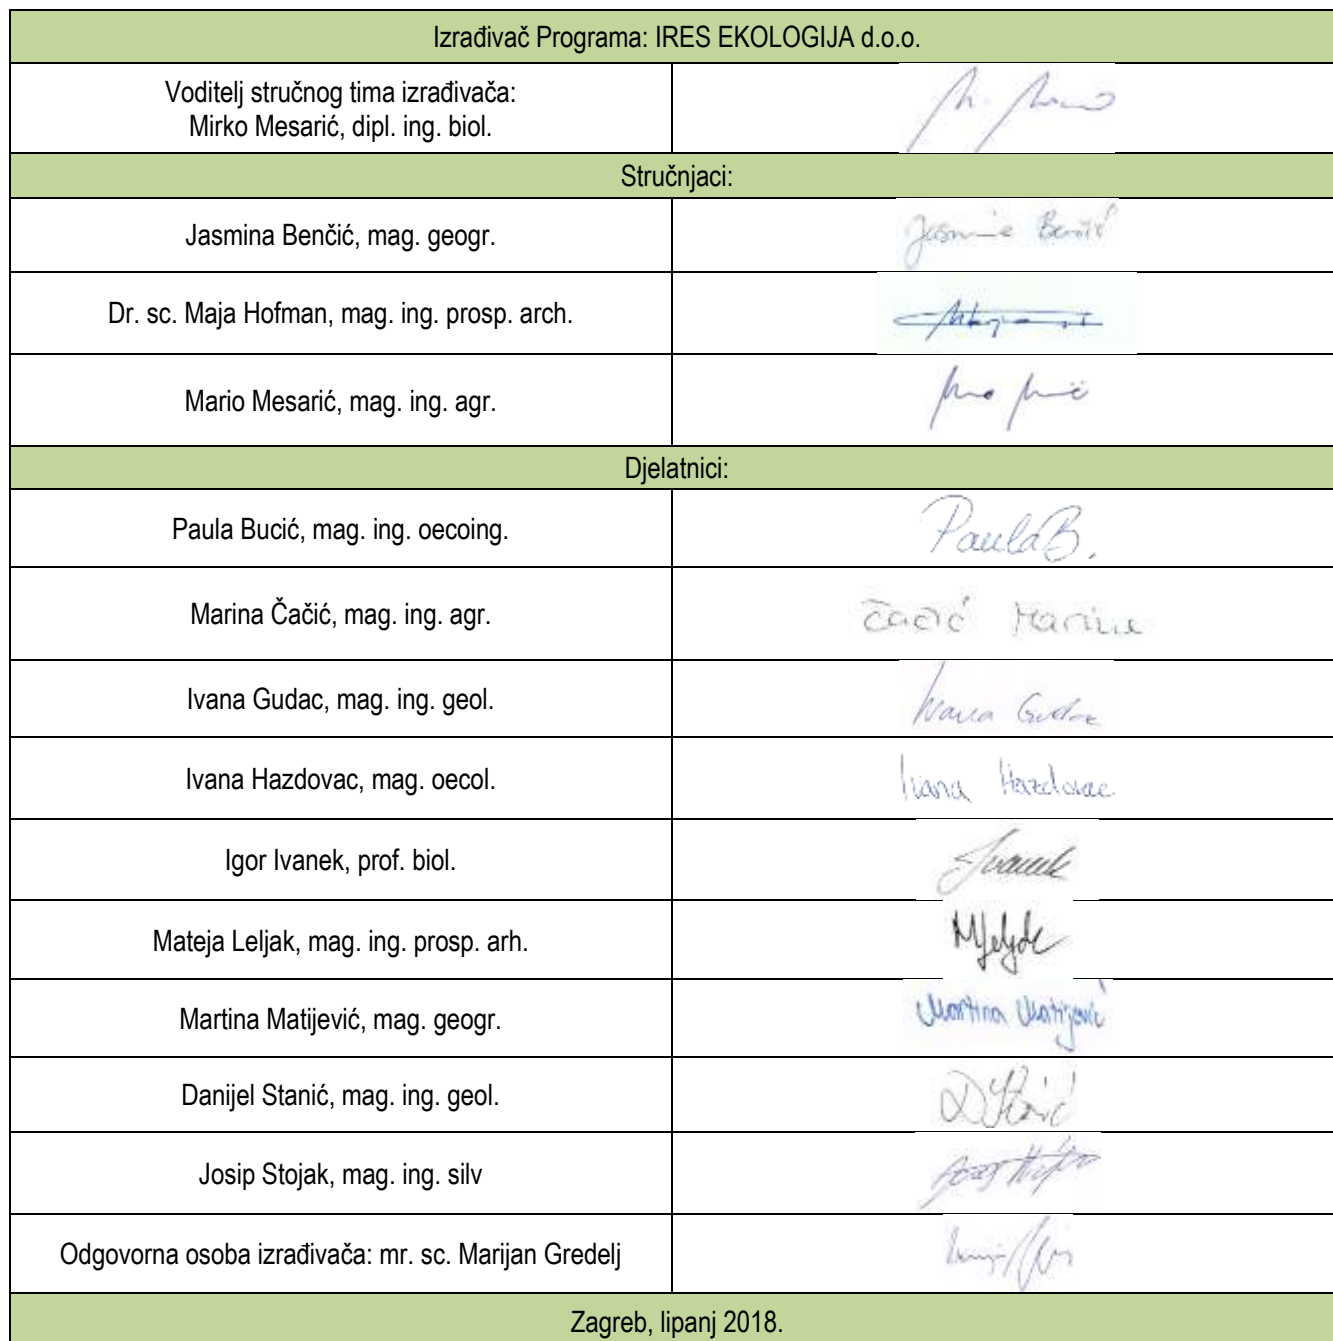 Izrađivač Programa: IRES EKOLOGIJA d.o.o.
Voditelj stručnog tima izrađivača:
Mirko Mesarić, dipl. ing. biol.
Stručnjaci:
Jasmina Benčić, mag. geogr.
Jasmina Benčić
Dr. sc. Maja Hofman, mag. ing. prosp. arch.
Mario Mesarić, mag. ing. agr.
Djelatnici:
Paula Bucić, mag. ing. oecoing.
PaulaB.
Marina Čačić, mag. ing. agr.
Čačić Marina
Ivana Gudac, mag. ing. geol.
Ivana Gudac
Ivana Hazdovac, mag. oecol.
Ivana Hazdovac
Igor Ivanek, prof. biol.
Ivanek
Mateja Leljak, mag. ing. prosp. arh.
Martina Matijević, mag. geogr.
Martina Matijević
Danijel Stanić, mag. ing. geol.
Josip Stojak, mag. ing. silv
Odgovorna osoba izrađivača: mr. sc. Marijan Gredelj
Zagreb, lipanj 2018.